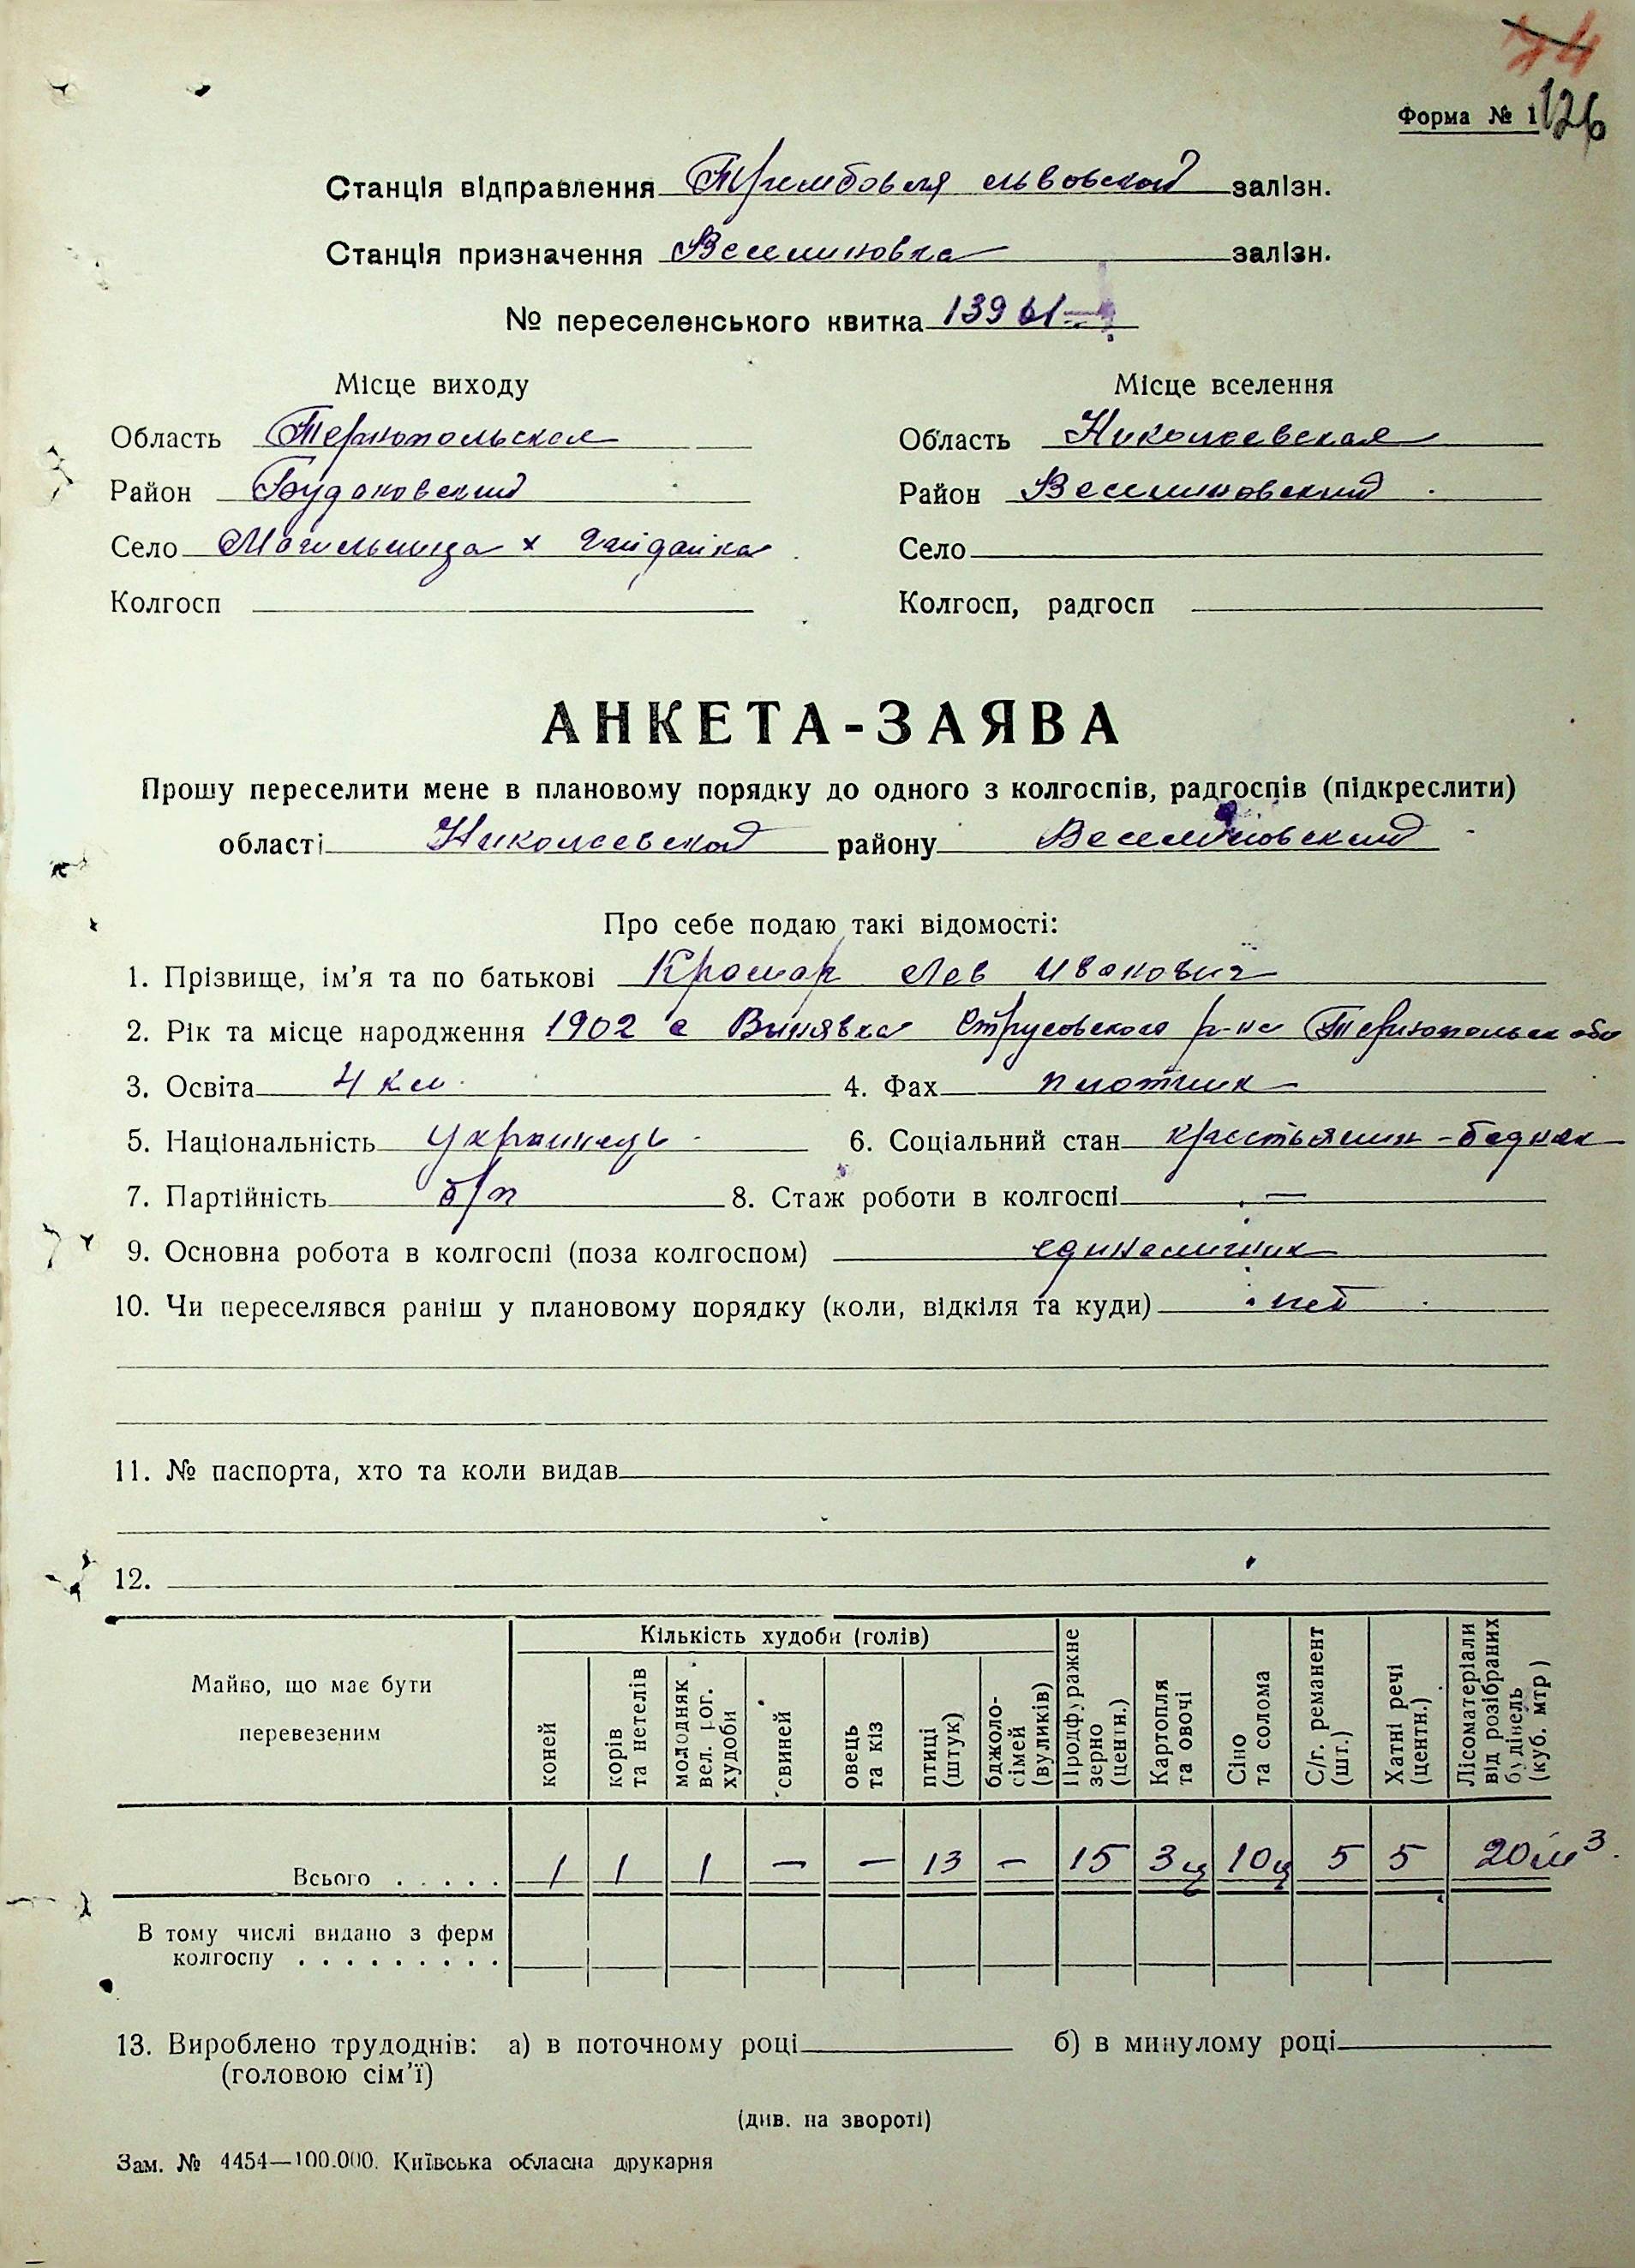 74
Форма № 1 126
Станція відправлення Трембовля львовской залізн.
Станція призначення Веселиновка залізн.
№ переселенського квитка 13961
Місце виходу Місце вселення
Область Тернопольская Область Николаевская
Район Будановский Район Веселиновский
Село Могильница х Гайдайка Село
Колгосп Колгосп, радгосп
АНКЕТА-ЗАЯВА
Прошу переселити мене в плановому порядку до одного з колгоспів, радгоспів (підкреслити)
області Николаевской району Веселиновский
Про себе подаю такі відомості:
1. Прізвище, ім'я та по батькові Крамар Лев Иванович
2. Рік та місце народження 1902 с Вынявка Струсовского р-на Тернопольск обл
3. Освіта 4 кл. 4. Фах плотник
5. Національність украинець 6. Соціальний стан крестьянин-бедняк
7. Партійність б/п 8. Стаж роботи в колгоспі —
9. Основна робота в колгоспі (поза колгоспом) единоличник
10. Чи переселявся раніш у плановому порядку (коли, відкіля та куди) нет
11. № паспорта, хто та коли видав
12.
Майно, що має бути перевезеним
Кількість худоби (голів)
коней
корів та нетелів
молодняк вел. рог. худоби
свиней
овець та кіз
птиці (штук)
бджоло-сімей (вуликів)
Продфуражне зерно (центн.)
Картопля та овочі
Сіно та солома
С/г. реманент (шт.)
Хатні речі (центн.)
Лісоматеріали від розібраних будівель (куб. мтр)
Всього . . . . . 1 1 1 — — 13 — 15 3ц 10ц 5 5 20 м³.
В тому числі видано з ферм
колгоспу . . . . . . . . .
13. Вироблено трудоднів: а) в поточному році б) в минулому році
(головою сім'ї)
(див. на звороті)
Зам. № 4454—100.000. Київська обласна друкарня